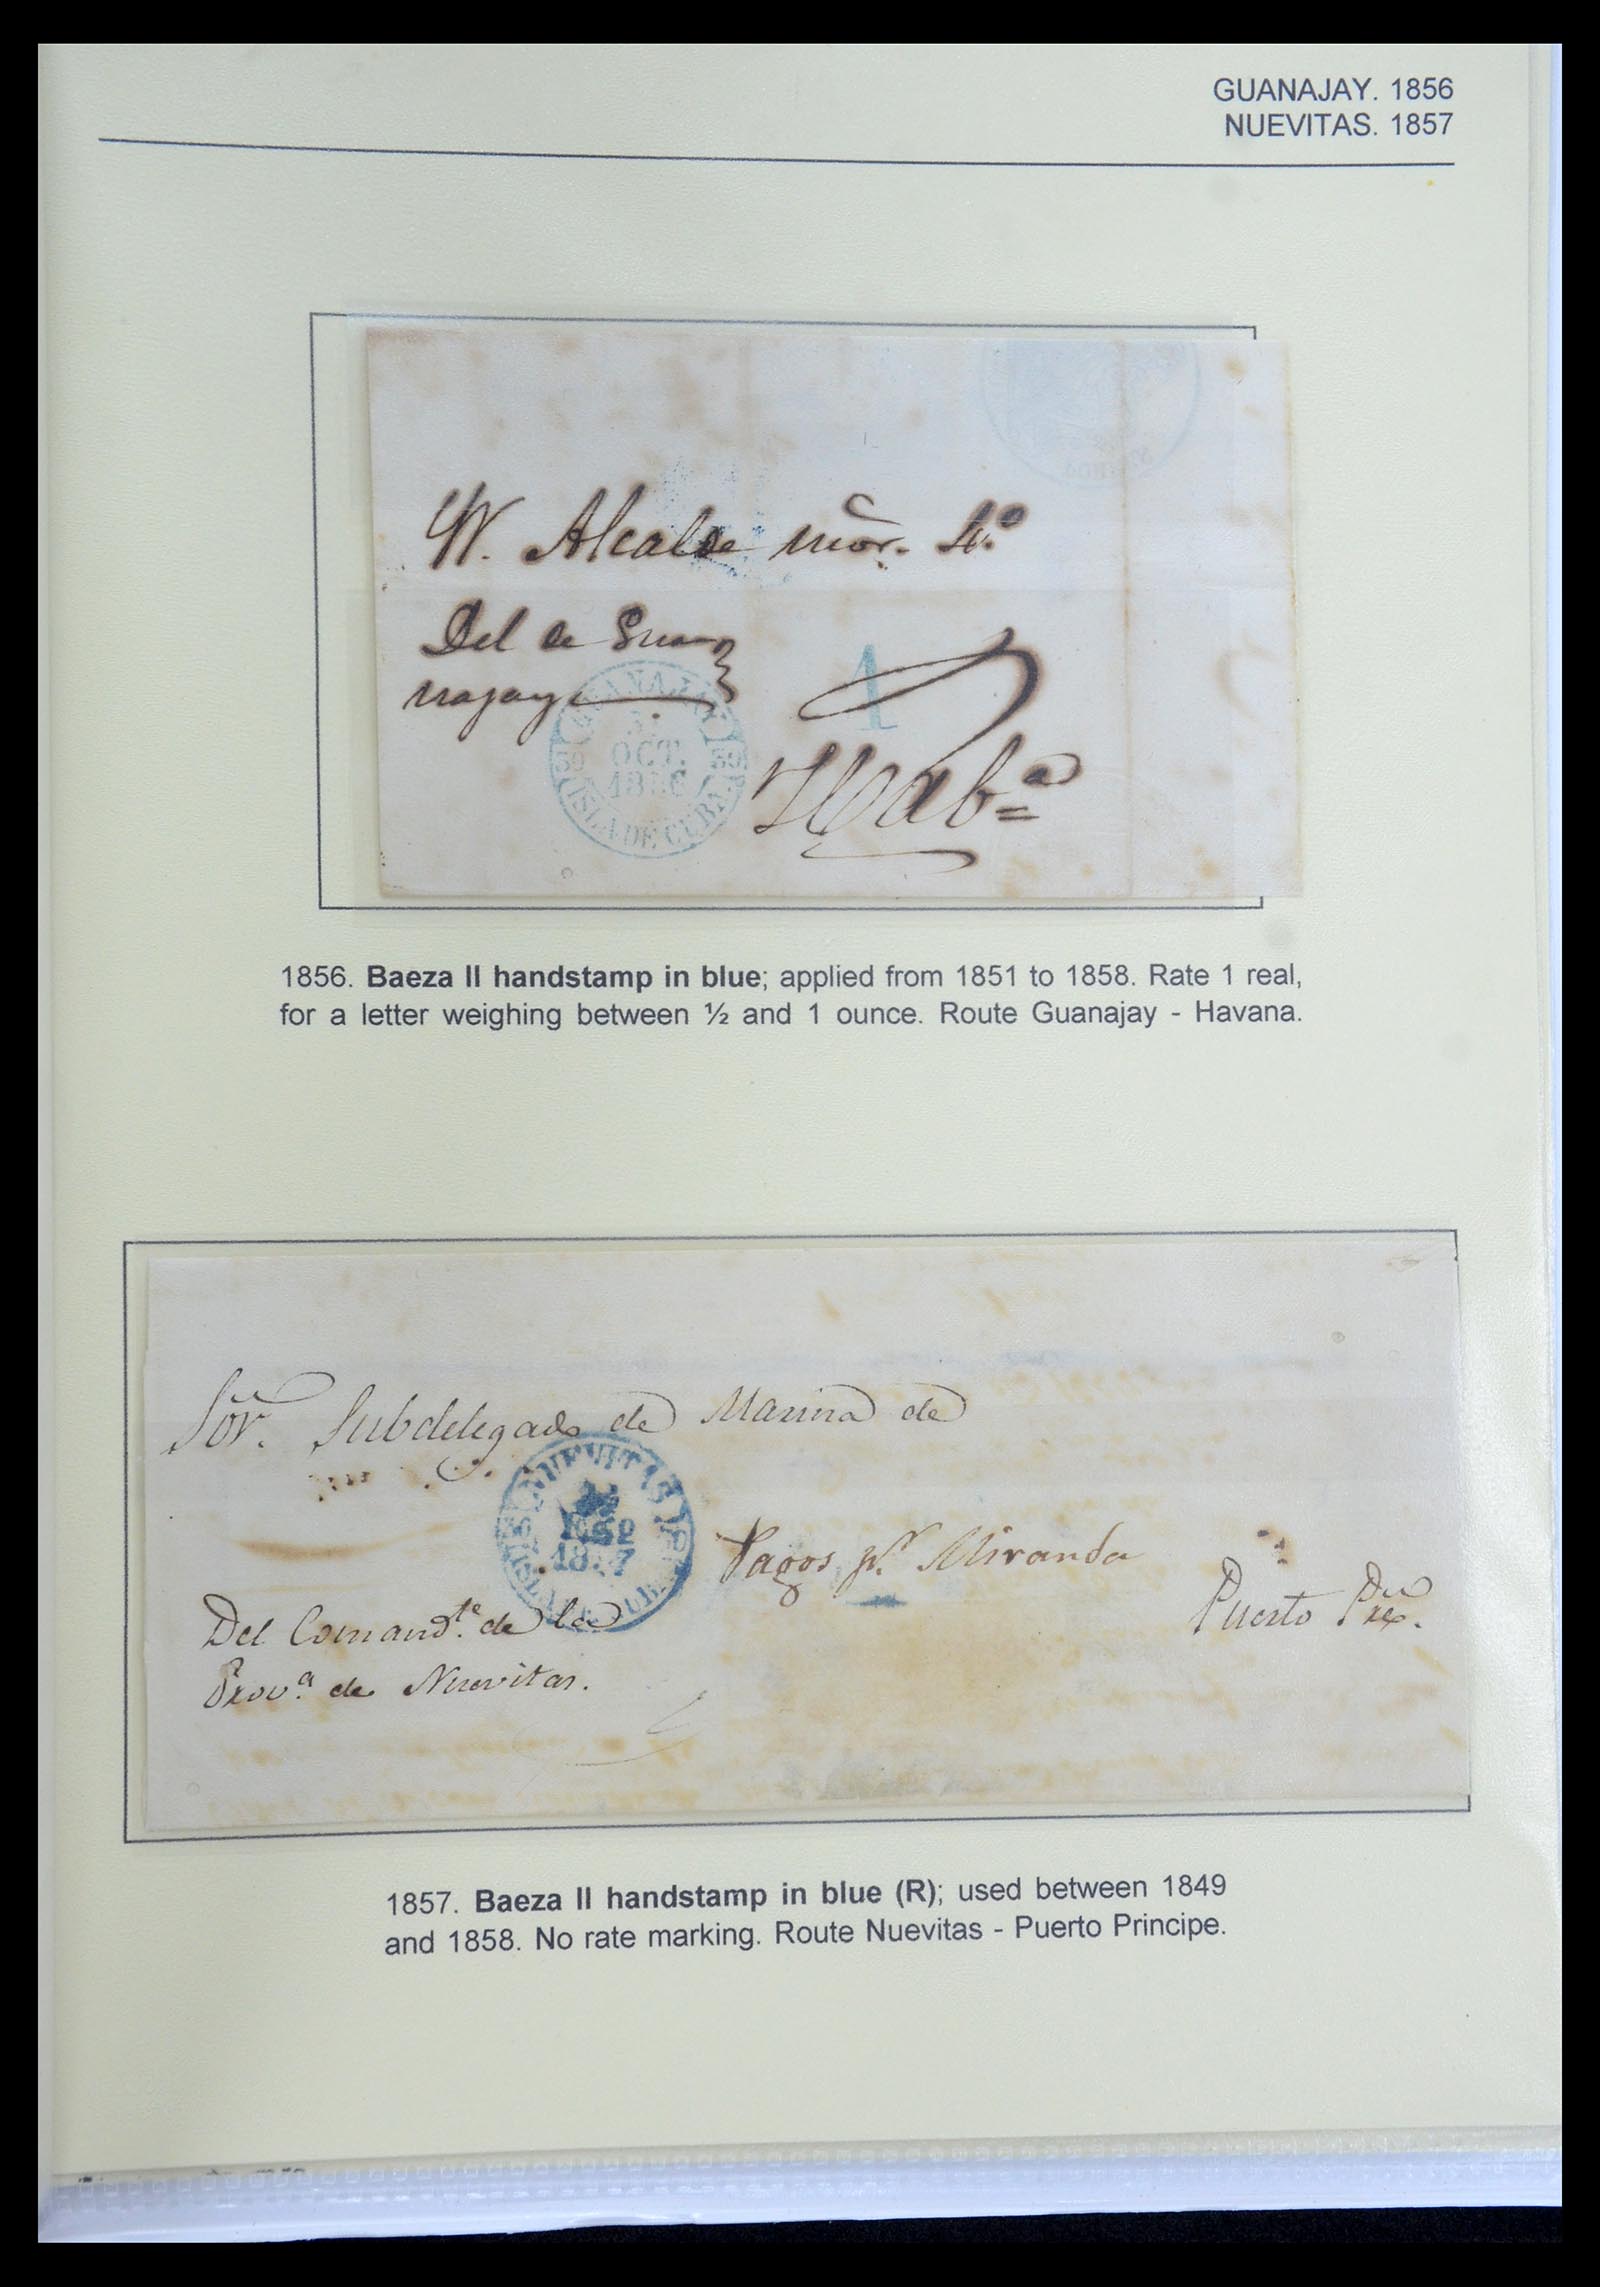 GUANAJAY. 1856
NUEVITAS. 1857
Alcalde mor. 4.º
Del de Gua-
najay
1
Habª
GUANAJAY
OCT.
1856
ISLA DE CUBA
1856. Baeza II handstamp in blue; applied from 1851 to 1858. Rate 1 real,
for a letter weighing between ½ and 1 ounce. Route Guanajay - Havana.
Sor. Subdelegado de Marina de
NUEVITAS
1857
Pagos pr Miranda
Puerto Pre.
Del Comandte. de la
Prova. de Nuevitas.
1857. Baeza II handstamp in blue (R); used between 1849
and 1858. No rate marking. Route Nuevitas - Puerto Principe.